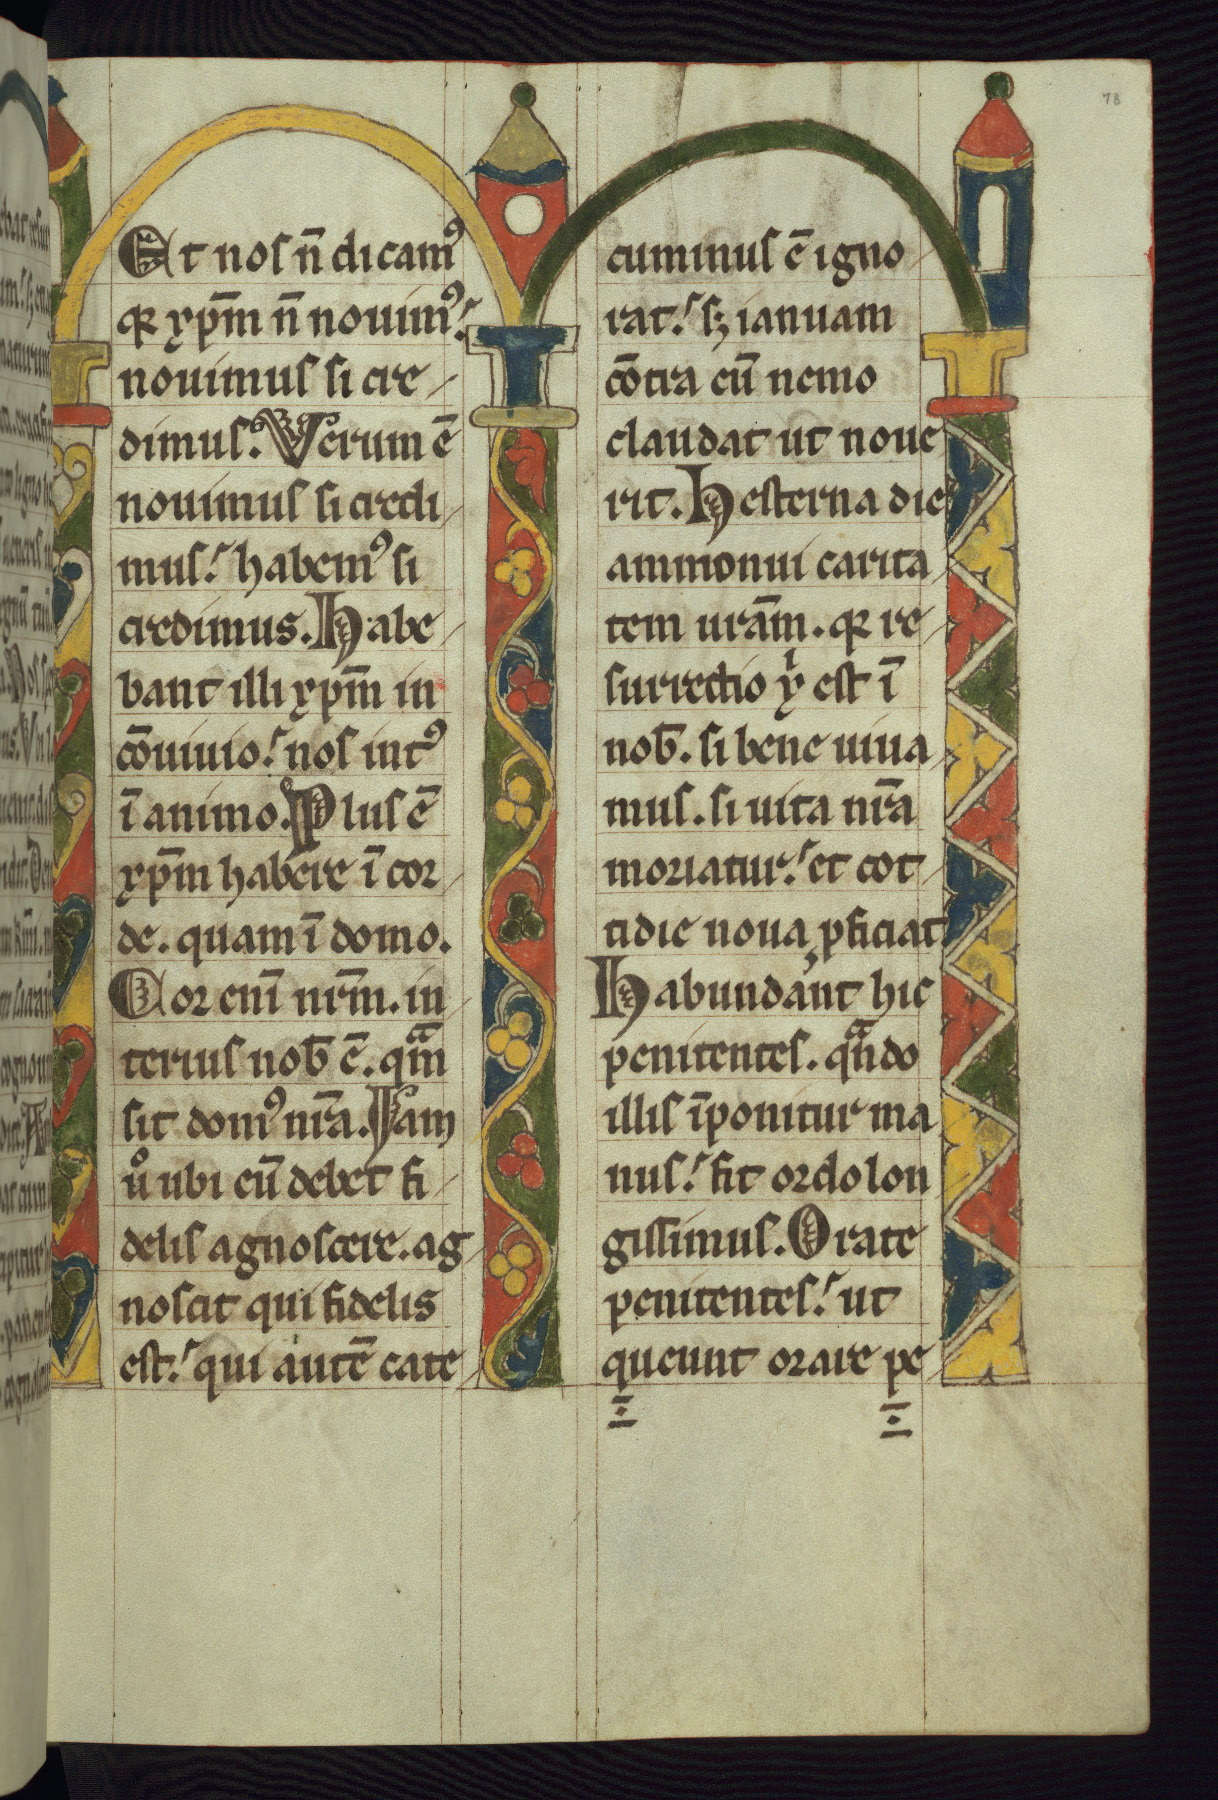 78
Et nos n̄ dicamꝰ
qꝛ xp̄m n̄ nouimꝰ.
nouimus si cre
dimus. Verum ē
nouimus si credi
mus. habemꝰ si
credimus. Habe
bant illi xp̄m in
cōuiuio. nos intꝰ
ī animo. Plus ē
xp̄m habere ī cor
de. quam ī domo.
Cor enī nr̄m. in
terius nob̄ ē. qᵃ̄m
sit domꝰ nr̄a. Iam
uͦ ubi eū debet fi
delis agnoscere. ag
noscit qui fidelis
est. qui autē cate
cuminus ē igno
rat. sꝫ ianuam
cōtra eū nemo
claudat ut noue
rit. Hesterna die
ammonui carita
tem urām. qꝛ re
surrectio xⁱ est ī
nob̄. si bene uiua
mus. si uita nr̄a
moriatur. et cot
tidie noua ꝓficiat
Habundant hic
penitentes. qᵃ̄ndo
illis īponitur ma
nus. fit ordo lon
gissimus. Orate
penitentes. ut
queunt orare pe